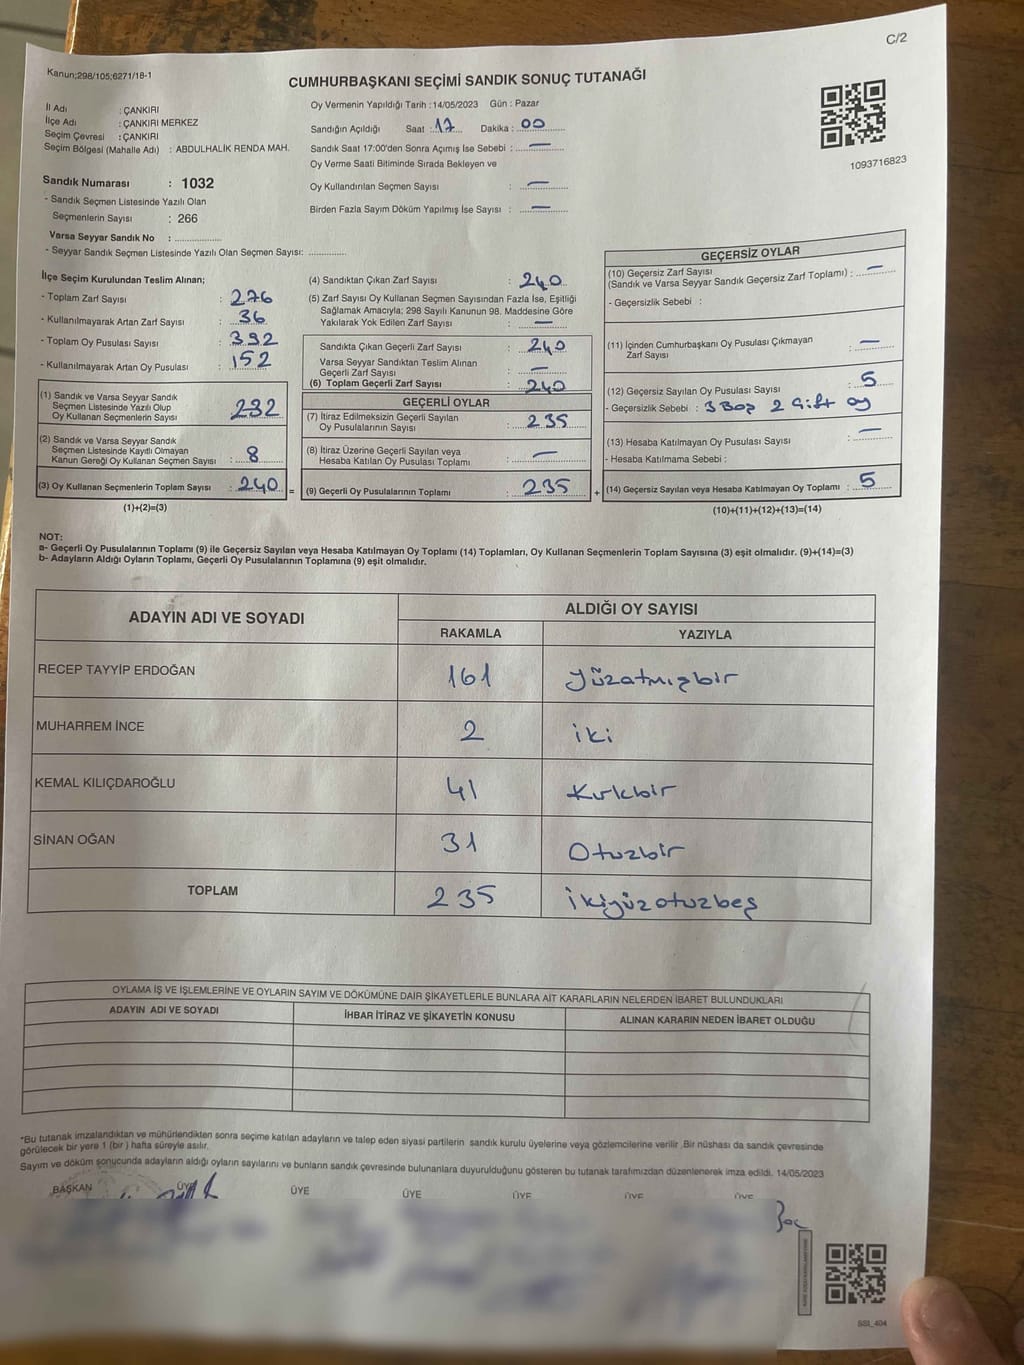 C/2
Kanun;298/105;6271/18-1
CUMHURBAŞKANI SEÇİMİ SANDIK SONUÇ TUTANAĞI
İl Adı : ÇANKIRI
İlçe Adı : ÇANKIRI MERKEZ
Seçim Çevresi : ÇANKIRI
Seçim Bölgesi (Mahalle Adı) : ABDULHALİK RENDA MAH.
Oy Vermenin Yapıldığı Tarih : 14/05/2023 Gün : Pazar
Sandığın Açıldığı Saat : 17 Dakika : 00
Sandık Saat 17:00'den Sonra Açımış İse Sebebi : —
Oy Verme Saati Bitiminde Sırada Bekleyen ve
Oy Kullandırılan Seçmen Sayısı : —
Birden Fazla Sayım Döküm Yapılmış İse Sayısı : —
1093716823
Sandık Numarası : 1032
- Sandık Seçmen Listesinde Yazılı Olan
Seçmenlerin Sayısı : 266
Varsa Seyyar Sandık No : ....................
- Seyyar Sandık Seçmen Listesinde Yazılı Olan Seçmen Sayısı: ................
İlçe Seçim Kurulundan Teslim Alınan;
- Toplam Zarf Sayısı : 276
- Kullanılmayarak Artan Zarf Sayısı : 36
- Toplam Oy Pusulası Sayısı : 392
- Kullanılmayarak Artan Oy Pusulası : 152
(1) Sandık ve Varsa Seyyar Sandık
Seçmen Listesinde Yazılı Olup
Oy Kullanan Seçmenlerin Sayısı 232
(2) Sandık ve Varsa Seyyar Sandık
Seçmen Listesinde Kayıtlı Olmayan
Kanun Gereği Oy Kullanan Seçmen Sayısı : 8
(3) Oy Kullanan Seçmenlerin Toplam Sayısı : 240 =
(1)+(2)=(3)
(4) Sandıktan Çıkan Zarf Sayısı : 240
(5) Zarf Sayısı Oy Kullanan Seçmen Sayısından Fazla İse, Eşitliği
Sağlamak Amacıyla; 298 Sayılı Kanunun 98. Maddesine Göre
Yakılarak Yok Edilen Zarf Sayısı : —
Sandıkta Çıkan Geçerli Zarf Sayısı : 240
Varsa Seyyar Sandıktan Teslim Alınan
Geçerli Zarf Sayısı : —
(6) Toplam Geçerli Zarf Sayısı : 240
GEÇERLİ OYLAR
(7) İtiraz Edilmeksizin Geçerli Sayılan
Oy Pusulalarının Sayısı : 235
(8) İtiraz Üzerine Geçerli Sayılan veya
Hesaba Katılan Oy Pusulası Toplamı : —
(9) Geçerli Oy Pusulalarının Toplamı : 235 +
GEÇERSİZ OYLAR
(10) Geçersiz Zarf Sayısı
(Sandık ve Varsa Seyyar Sandık Geçersiz Zarf Toplamı) : —
- Geçersizlik Sebebi :
(11) İçinden Cumhurbaşkanı Oy Pusulası Çıkmayan
Zarf Sayısı : —
(12) Geçersiz Sayılan Oy Pusulası Sayısı : 5
- Geçersizlik Sebebi : 3 Boş 2 Çift oy
(13) Hesaba Katılmayan Oy Pusulası Sayısı : —
- Hesaba Katılmama Sebebi :
(14) Geçersiz Sayılan veya Hesaba Katılmayan Oy Toplamı : 5
(10)+(11)+(12)+(13)=(14)
NOT:
a- Geçerli Oy Pusulalarının Toplamı (9) ile Geçersiz Sayılan veya Hesaba Katılmayan Oy Toplamı (14) Toplamları, Oy Kullanan Seçmenlerin Toplam Sayısına (3) eşit olmalıdır. (9)+(14)=(3)
b- Adayların Aldığı Oyların Toplamı, Geçerli Oy Pusulalarının Toplamına (9) eşit olmalıdır.
ADAYIN ADI VE SOYADI
ALDIĞI OY SAYISI
RAKAMLA YAZIYLA
RECEP TAYYİP ERDOĞAN 161 yüzatmışbir
MUHARREM İNCE 2 iki
KEMAL KILIÇDAROĞLU 41 Kırkbir
SİNAN OĞAN 31 Otuzbir
TOPLAM 235 ikiyüzotuzbeş
OYLAMA İŞ VE İŞLEMLERİNE VE OYLARIN SAYIM VE DÖKÜMÜNE DAİR ŞİKAYETLERLE BUNLARA AİT KARARLARIN NELERDEN İBARET BULUNDUKLARI
ADAYIN ADI VE SOYADI İHBAR İTİRAZ VE ŞİKAYETİN KONUSU ALINAN KARARIN NEDEN İBARET OLDUĞU
*Bu tutanak imzalandıktan ve mühürlendikten sonra seçime katılan adayların ve talep eden siyasi partilerin sandık kurulu üyelerine veya gözlemcilerine verilir .Bir nüshası da sandık çevresinde
görülecek bir yere 1 (bir ) hafta süreyle asılır.
Sayım ve döküm sonucunda adayların aldığı oyların sayılarını ve bunların sandık çevresinde bulunanlara duyurulduğunu gösteren bu tutanak tarafımızdan düzenlenerek imza edildi. 14/05/2023
BAŞKAN ÜYE ÜYE ÜYE ÜYE ÜYE ÜYE
SSI_404